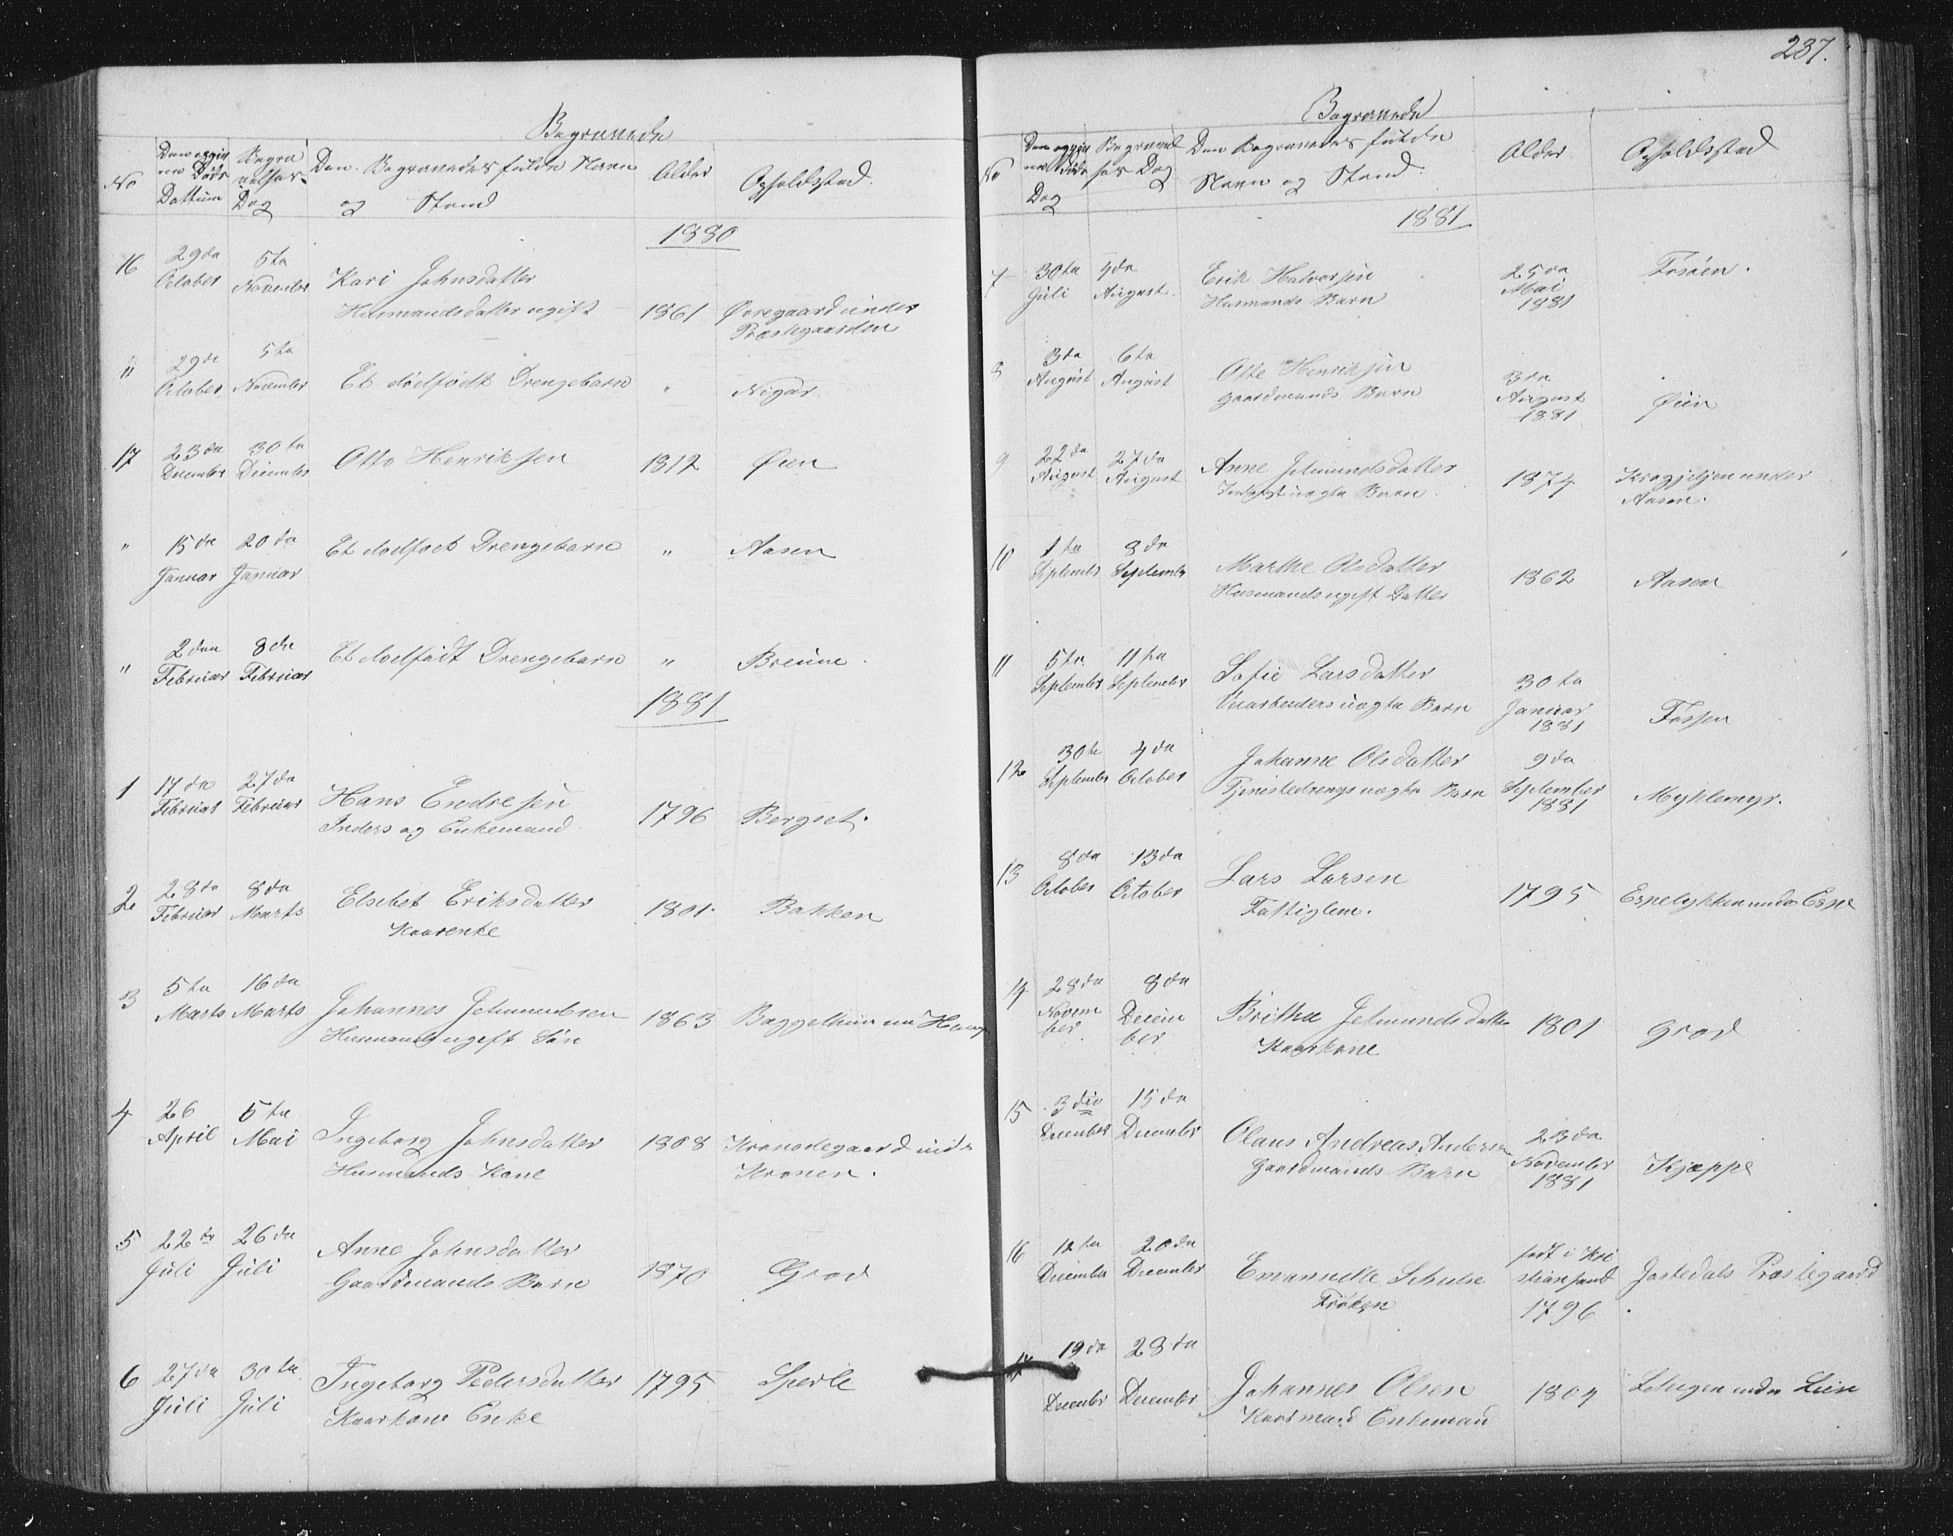 237.
Begravede
No
Den opgivne Døds Dattum
Begravelses Dag
Den Begravedes fulde Navn og Stand
Alder
Opholdsstad.
1880
16 29de October 5te November Kari Johnsdatter
Husmandsdatter ugift 1861 Øvregaard under
Præstegaarden
" 29de October 5te November Et dødfødt Drengebarn " Nigar.
17 23de December 30te December Otto Henriksen 1812 Øien
" 15de Januar 20de Januar Et dødfødt Drengebarn " Aasen
" 2den Februar 8de Februar Et dødfødt Drengebarn " Breiine.
1881
1 17de Februar 27de Februar Hans Endresen
Inders og Enkemand 1796 Bergset.
2 28de Februar 8de Marts Elsebet Eriksdatter
Kaarenke 1801. Bakken
3 5te Marts 16de Marts Johannes Jetmundsen
Husmands ugift Søn 1863
4 26 April 5te Mai Ingeborg Johnsdatter
Husmands Kone 1808 Kronedegaard under
Kronen.
5 22de Juli 26de Juli Anne Johnsdatter
Gaardmands Barn 1870 Grod
6 27de Juli 30te Juli Ingeborg Pedersdatter
Kaarkone Enke 1795 Sperle
Begravede
No
Den opgivne Døds Dag
Begravelses Dag
Den Begravedes fulde
Navn og Stand.
Alder
Opholdsstad
1881
7 30te Juli 7de August. Erik Halvorsen
Husmands Barn 25de Mai 1881 Fosøen.
8 3de August 6te August Otte Henriksen
Gaardmands Barn 3de August 1881 Øien
9 22de August 27de August Anne Jetmundsdatter
Inderst uægte Barn. 1874 under
Aasen.
10 1te September 8de September Marthe Olsdatter
Husmands ugift Datter 1862 Aasen
11 5te September 11te September Sofie Larsdatter
uægte Barn 30te Januar 1881 Fossen
12 30te September 4de October Johanne Olsdatter
Tjenestedrengs uægte Barn 9de September 1881 Myklemyr.
13 8de October 13de October Lars Larsen
Fattiglem. 1795 Espelykken under Espe
14 28de November 8de December Brithe Jetmundsdatter
Kaarkone 1801 Grod
15 3die December 15de December Olaus Andreas Andersen
Gaardmands Barn 23de November 1881 Kjæppe
16 12te December 20de December Emanuelle Schulse
Frøken født i Kristiansand 1796 Jostedals Præstegaard
17 19de December 28de December Johannes Olsen
Kaarmand Enkemand 1804 under Liin